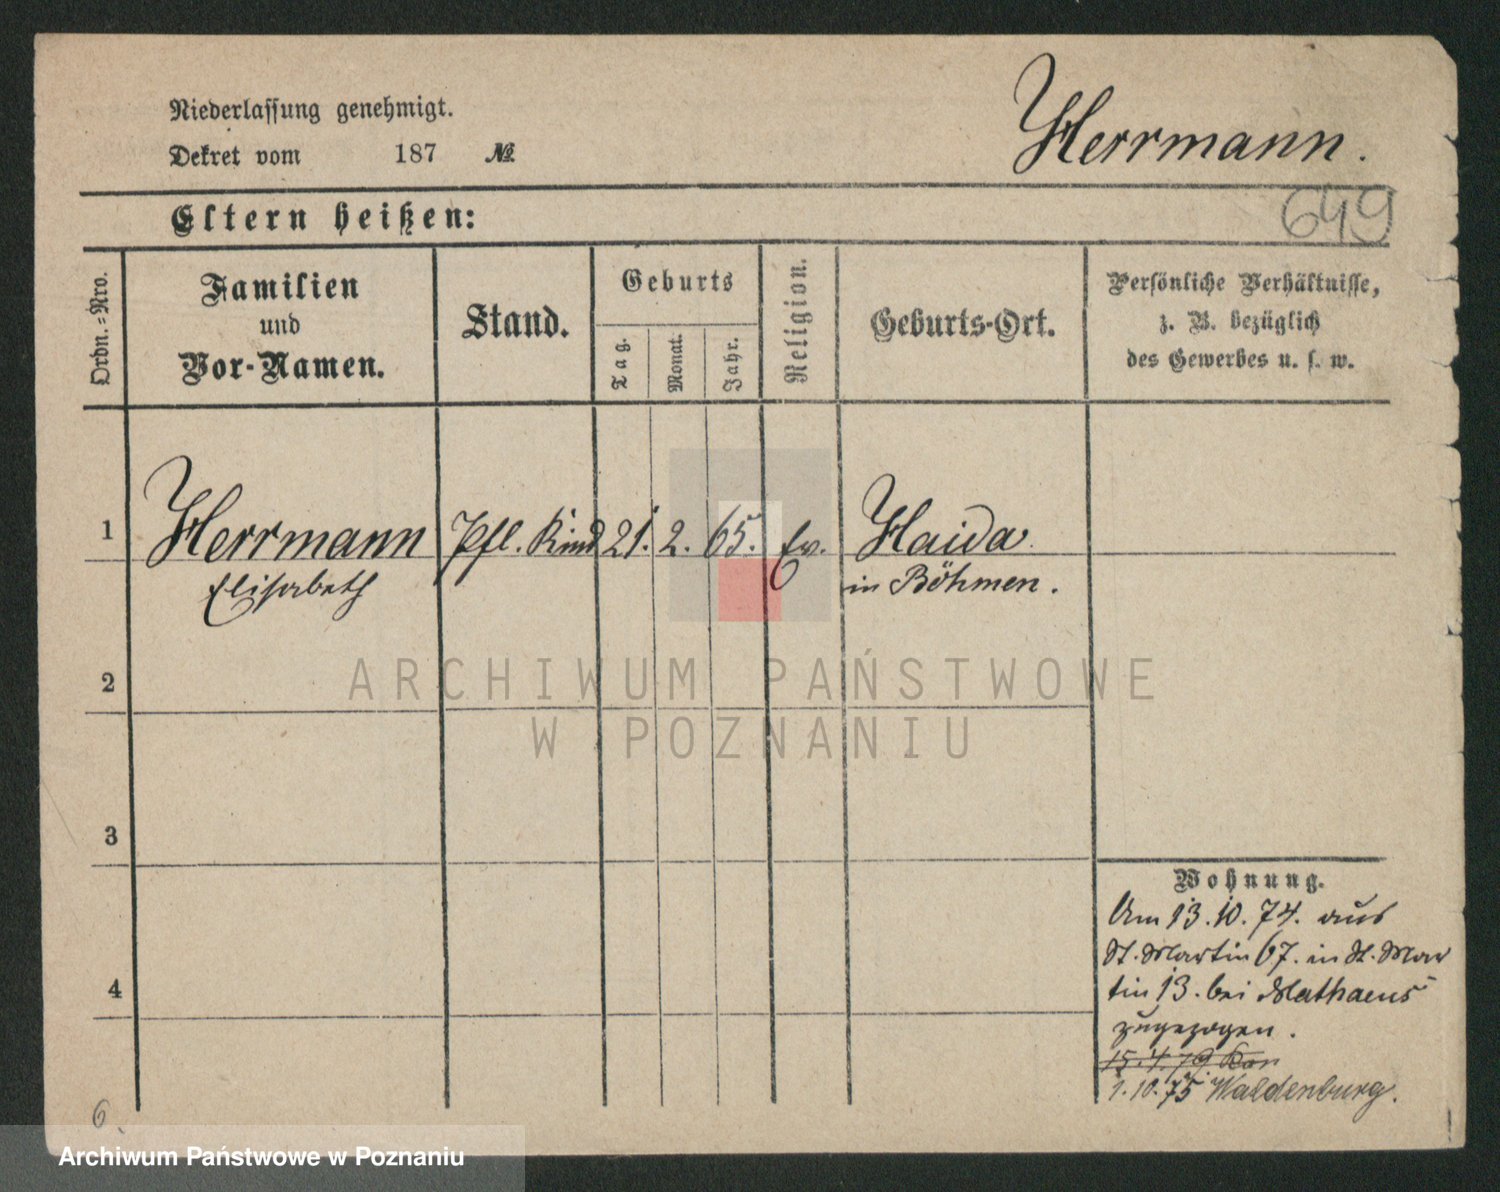 Niederlassung genehmigt.
Dekret vom 187 №
Herrmann.
649
Eltern heißen:
Ordn.-Nro.
Familien
und
Vor-Namen.
Stand.
Geburts
Tag.
Monat.
Jahr.
Religion.
Geburts-Ort.
Persönliche Verhältnisse,
z. B. bezüglich
des Gewerbes u. s. w.
1 Herrmann Pfl. Kind 21. 2. 65. Ev. Haida
Elisabeth in Böhmen.
2
3
4
ARCHIWUM PAŃSTWOWE
W POZNANIU
Wohnung.
Am 13.10.74. aus
St. Martin 67. in St. Mar
tin 13. bei Mathaeus
zugezogen.
15.4.79
1.10.75 Waldenburg.
6.
Archiwum Państwowe w Poznaniu